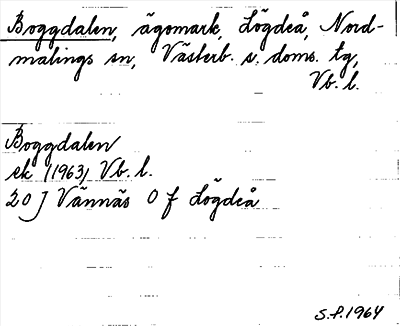 Boggdalen, ägomark, Lögdeå, Nord-
malings sn, Västerb. s. doms. tg,
Vb. l.
Boggdalen
ek (1963) Vb. l.
20 J Vännäs 0 f Lögdeå
S.P. 1964